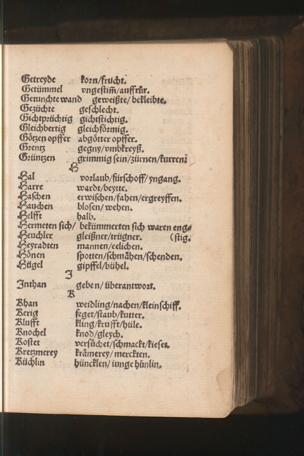 Getreyde korn/frücht.
Getümmel vngestim̃/auffrůr.
Getunchte wand geweißte/bekleibte.
Gezüchte geschlecht.
Gichtprüchtig gichtsüchtig.
Gleichbertig gleichförmig.
Götzen opffer abgötter opffer.
Grentz gegny/vmbkreyß.
Grüntzen grimmig sein/zürnen/kurren.
H
Hal vorlaub/fürschoff/yngang.
Harre wardt/beyte.
Haschen erwischen/fahen/ergreyffen.
Hauchen blosen/wehen.
Helfft halb.
Hermeten sich/ bekümmerten sich waren eng-
Heuchler gleißner/trügner. (stig.
Heyradten mannen/eelichen.
Hönen spotten/schmåhen/schenden.
Hügel gipffel/bühel.
J
Jnthan geben/überantwort.
K
Khan weidling/nachen/kleinschiff.
Kerig feget/staub/kutter.
Klufft kling/krufft/hüle.
Knöchel knod/gleych.
Kostet versüchet/schmackt/kieset.
Kretzmerey krämerey/merckten.
Küchlin hüncklen/iunge hünlin.